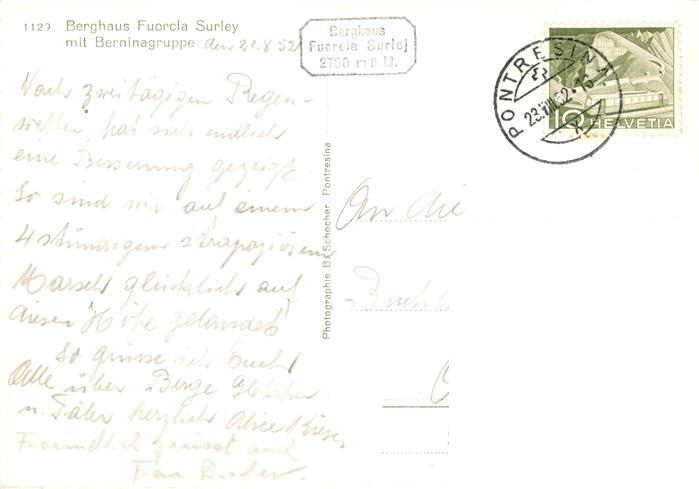 1129 Berghaus Fuorcla Surley
mit Berninagruppe den 21.8.52
Berghaus
Fuorcla Surlej
2760 m ü.M.
PONTRESINA
23.VIII.52.-16
10 HELVETIA
Nach zweitägigen Regen-
wetter, hat sich endlich
eine Besserung gezeigt.
So sind wir auf einem
4 stündigem strapaziösem
Marsch glücklich auf
dieser Höhe gelandet!
So grüsse ich Euch
Alle über Berge Gletscher
u. Täler herzlich Alice
Freundlich grüsst auch
Frau
Photographie B. Schocher, Pontresina
An die